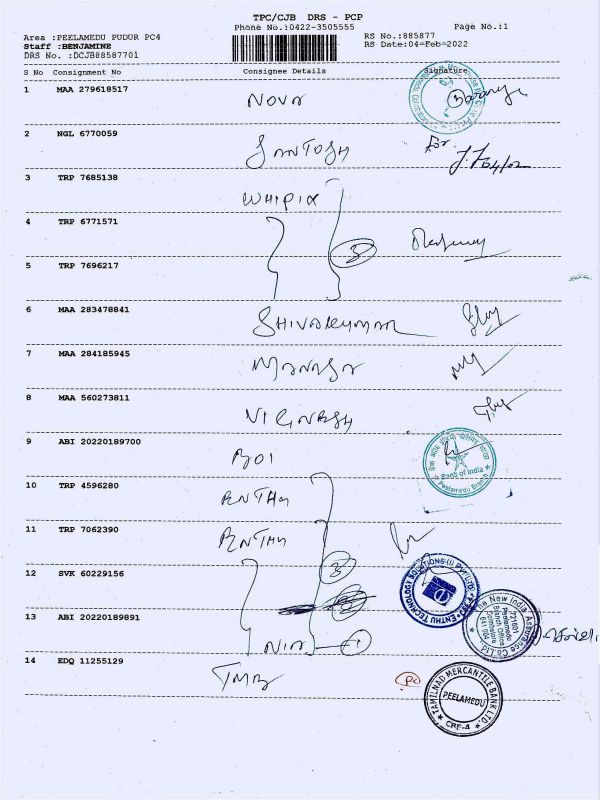 TPC/CJB DRS - PCP
Phone No.:0422-3505555 Page No.:1
Area :PEELAMEDU PUDUR PC4 RS No.:885877
Staff :BENJAMINE RS Date:04=Feb=2022
DRS No. :DCJB88587701
S No Consignment No Consignee Details Signature
1 MAA 279618517 NOVA
2 NGL 6770059 SANTOSH For
3 TRP 7685138 WHIPIX
4 TRP 6771571 3
5 TRP 7696217
6 MAA 283478841 SHIVAKUMAR
7 MAA 284185945 MANASA
8 MAA 560273811 VIGNESH
9 ABI 20220189700 BOI
Bank of India
Peelamedu Branch
10 TRP 4596280 ENTHU
11 TRP 7062390 ENTHU
12 SVK 60229156 3
ENTHU TECHNOLOGY SOLUTIONS (I) PVT LTD
13 ABI 20220189891 NIA 1
The New India Assurance Co. Ltd
721601
Peelamedu
Branch Office
Coimbatore
641 004
14 EDQ 11255129 TMB
TAMILNAD MERCANTILE BANK LTD.
PEELAMEDU
CBE-4